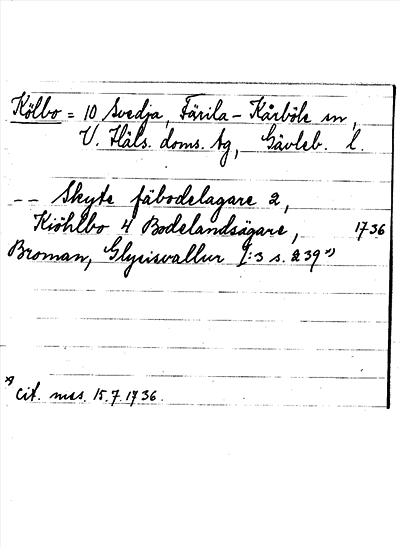 Kölbo = 10 Svedja, Färila-Kårböle sn,
V. Häls. doms. tg, Gävleb. l.
-- Skyte fäbodelagare 2,
Kiöhlbo 4 Bodelandsägare, 1736
Broman, Glysisvallur I:3 s. 239 x)
x) cit. mss. 15.7.1736.